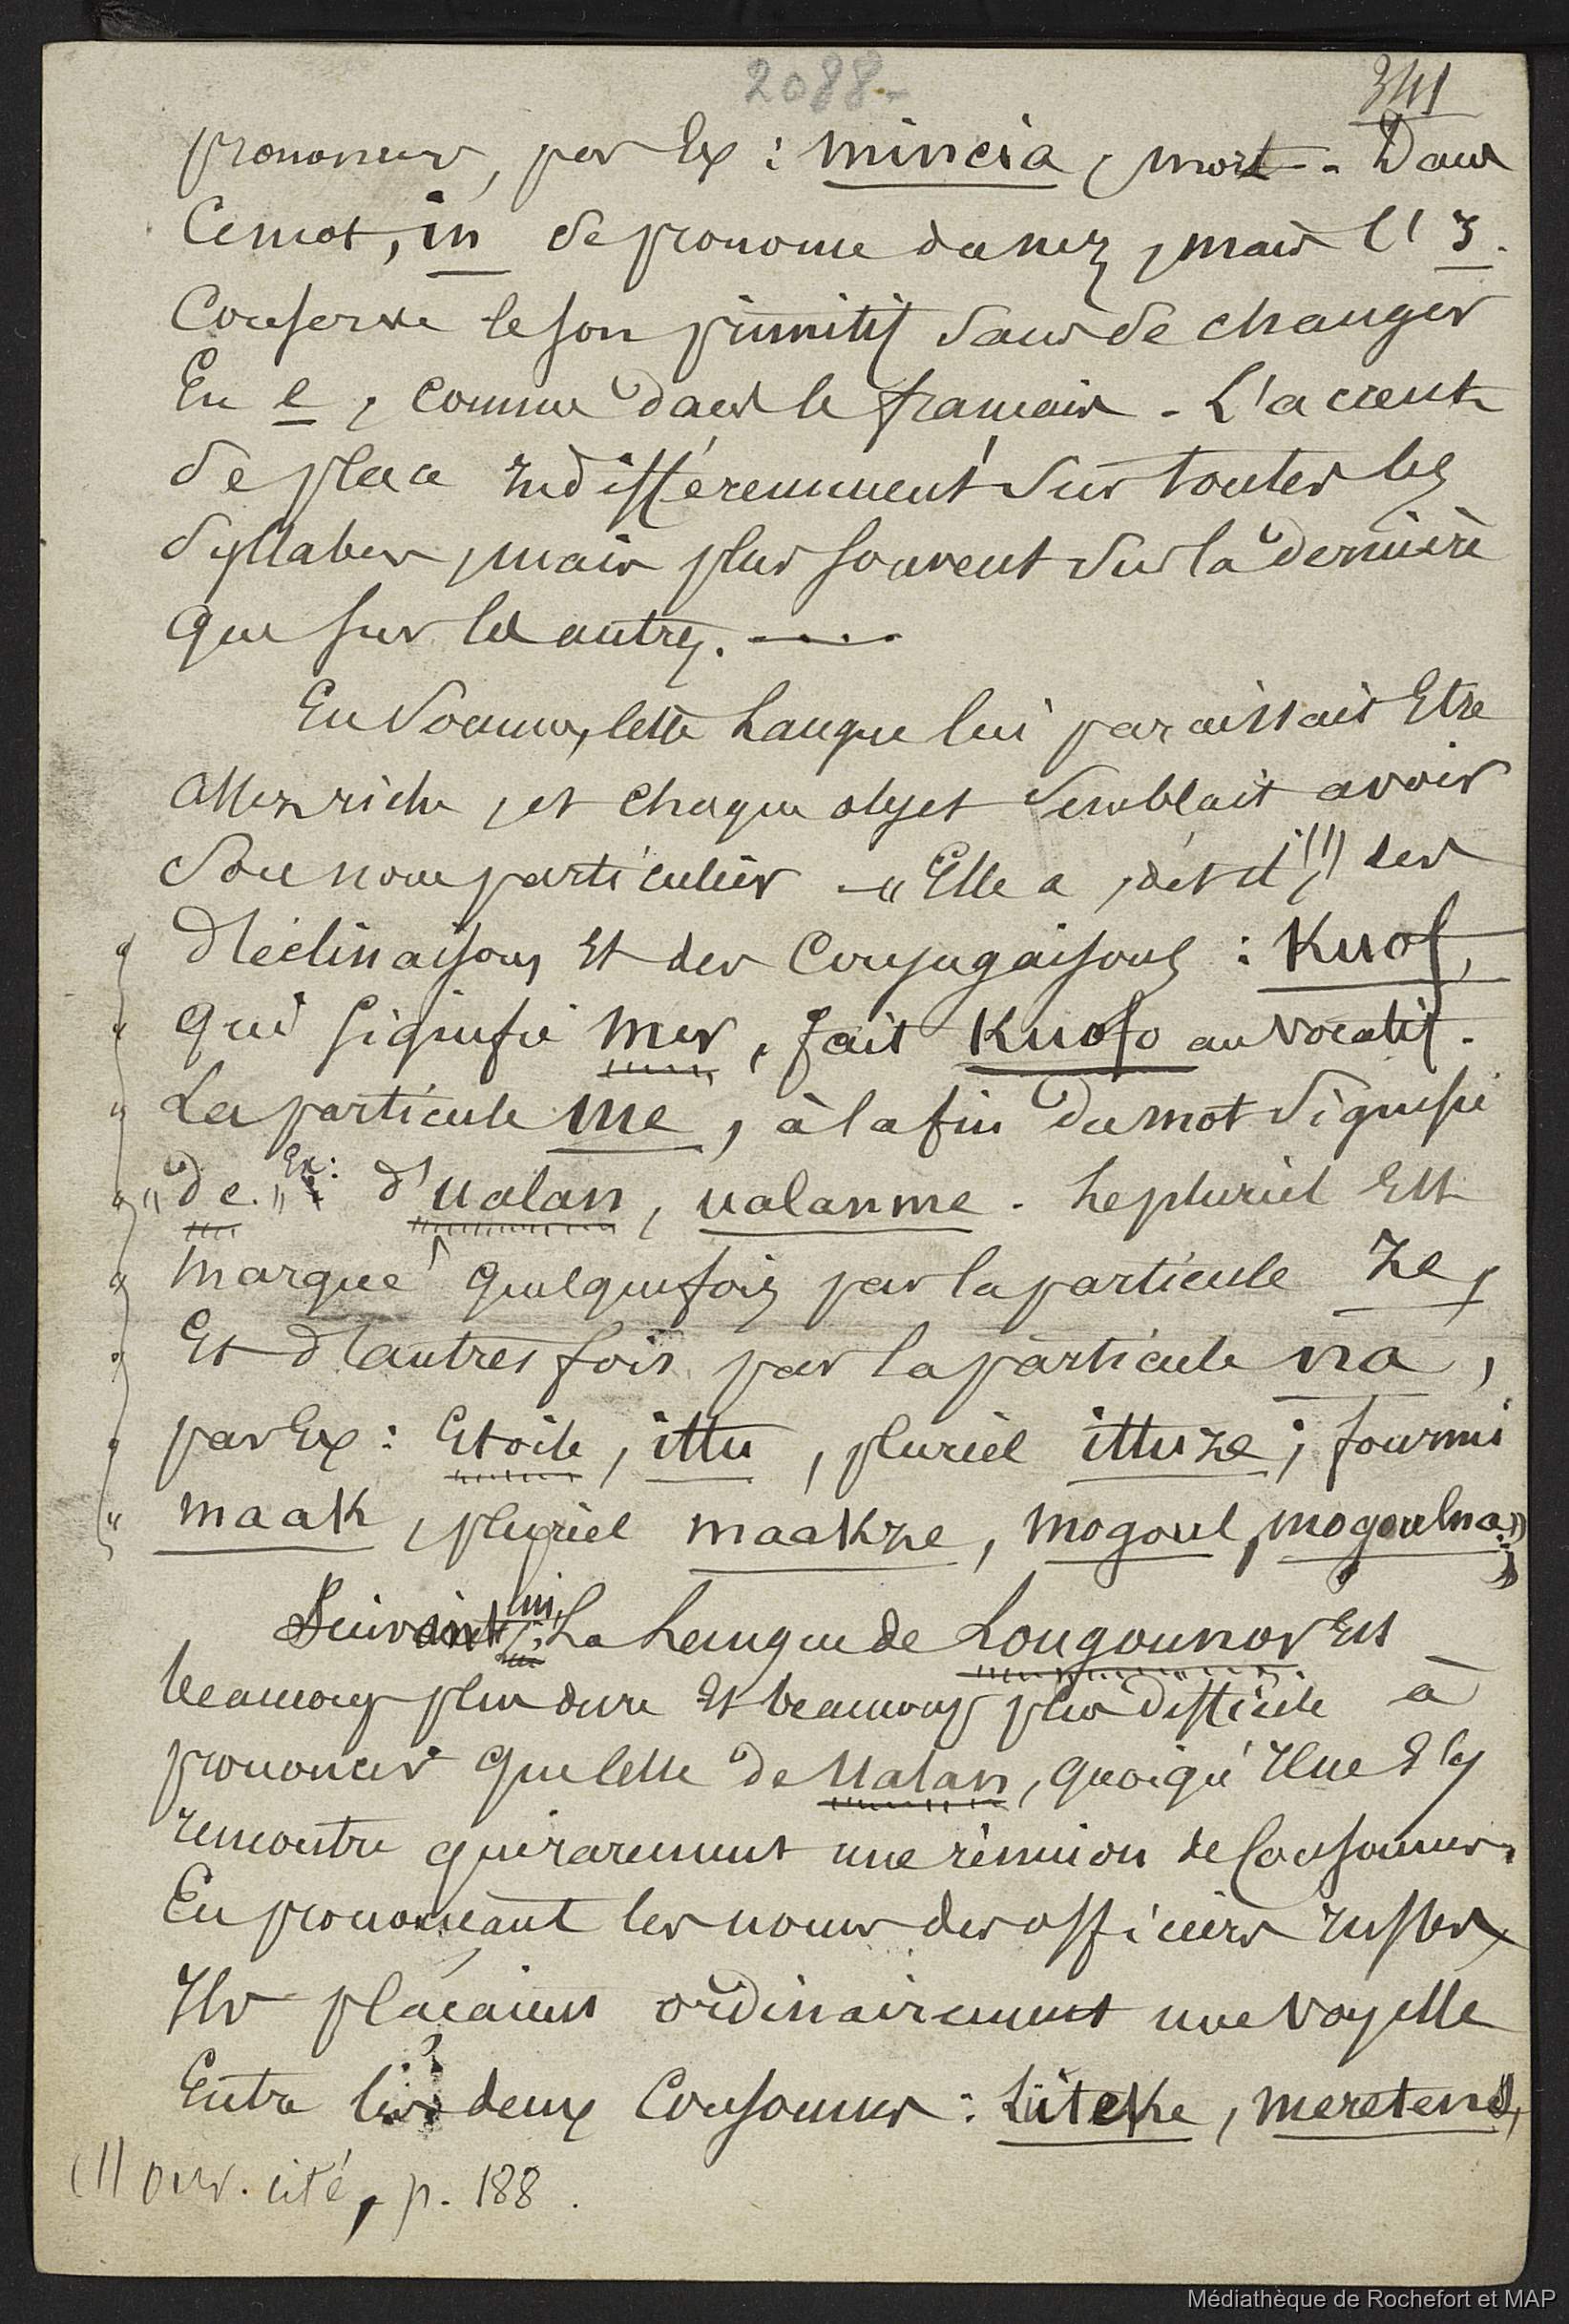 2088-
341
prononcer, par Ex : mincia, mort - Dans
Ce mot, in se prononce du nez, mais l'I.
Conserve le son primitif sans se changer
En e, comme dans le français - L'accent
se place Indifféremment sur toutes les
syllabes, mais plus souvent sur la dernière
que sur les autres. —
En somme, cette Langue lui paraissait Etre
assez riche, et chaque objet semblait avoir
son nom particulier - « Elle a, dit-il, (1) des
« déclinaisons Et des Conjugaisons : Kuof,
« qui signifie mer, fait Kuofo au vocatif.
« La particule me, à la fin du mot signifie
« "de." Ex : d'Ualan, ualanme - Le pluriel Est
« marqué quelquefois par la particule ze,
« Et d'autres fois par la particule na,
« par Ex : Etoile, ittu, pluriel ittuze ; fourmi
« maak, pluriel maakze, mogoul, mogoulna. »
Suivant lui, La Langue de Lougounor Est
beaucoup plus dure Et beaucoup plus difficile à
prononcer que celle de Ualan, quoiqu'Il ne s'y
rencontre que rarement une réunion de Consonnes.
En prononçant les noms des officiers russes,
Ils plaçaient ordinairement une voyelle
Entre les deux Consonnes : Lüteke, meretens,
(1) ouv. cité, p. 188.
Médiathèque de Rochefort et MAP